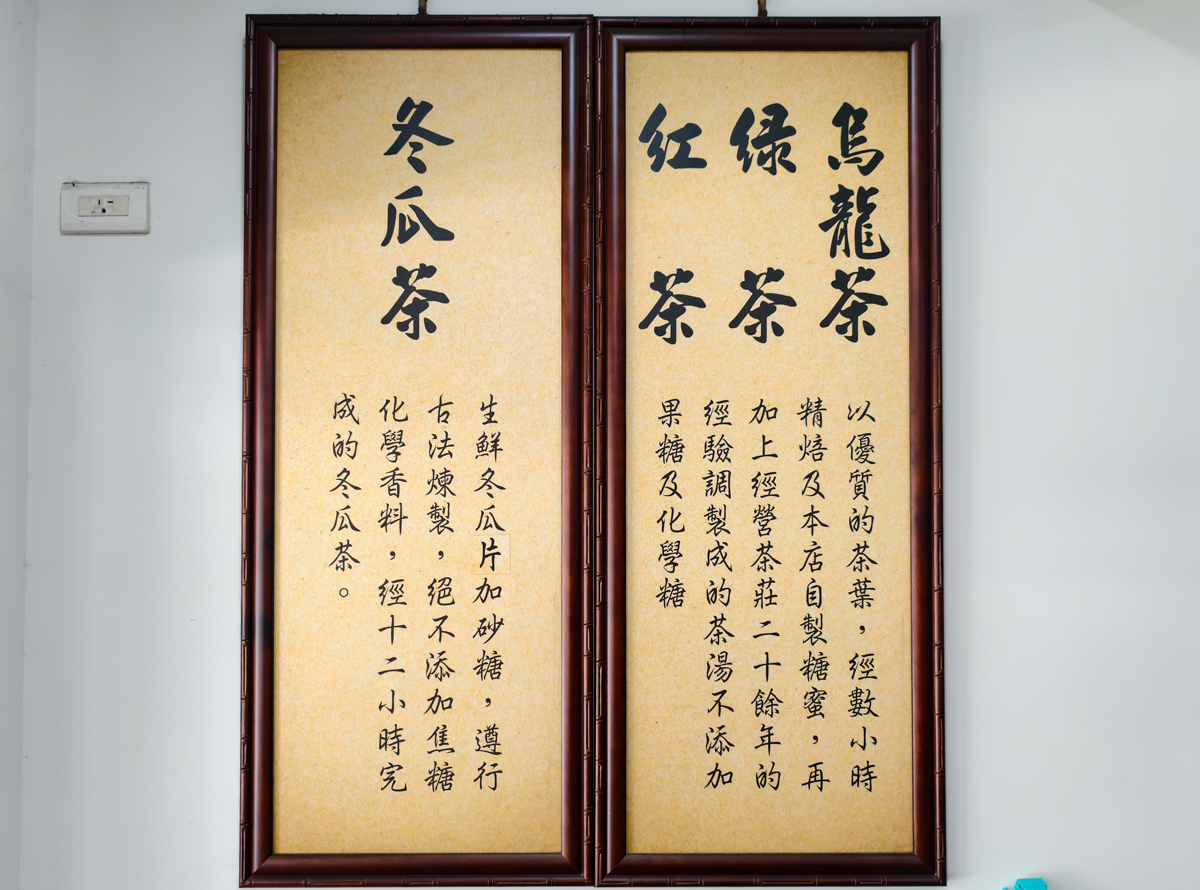 烏龍茶
綠茶
紅茶
以優質的茶葉，經數小時
精焙及本店自製糖蜜，再
加上經營茶莊二十餘年的
經驗調製成的茶湯不添加
果糖及化學糖
冬瓜茶
生鮮冬瓜片加砂糖，遵行
古法煉製，絕不添加焦糖
化學香料，經十二小時完
成的冬瓜茶。